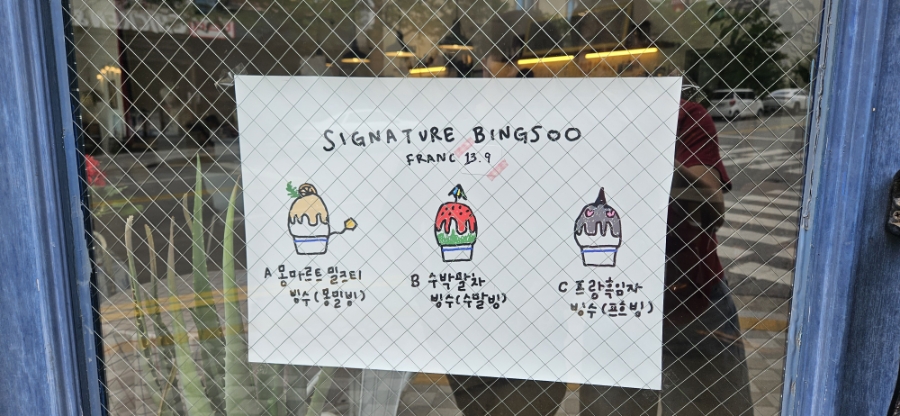 SIGNATURE BINGSOO
FRANC 13.9
A 몽마르트 밀크티
빙수 (몽밀빙)
B 수박말차
빙수 (수말빙)
C 프랑흑임자
빙수 (프흑빙)